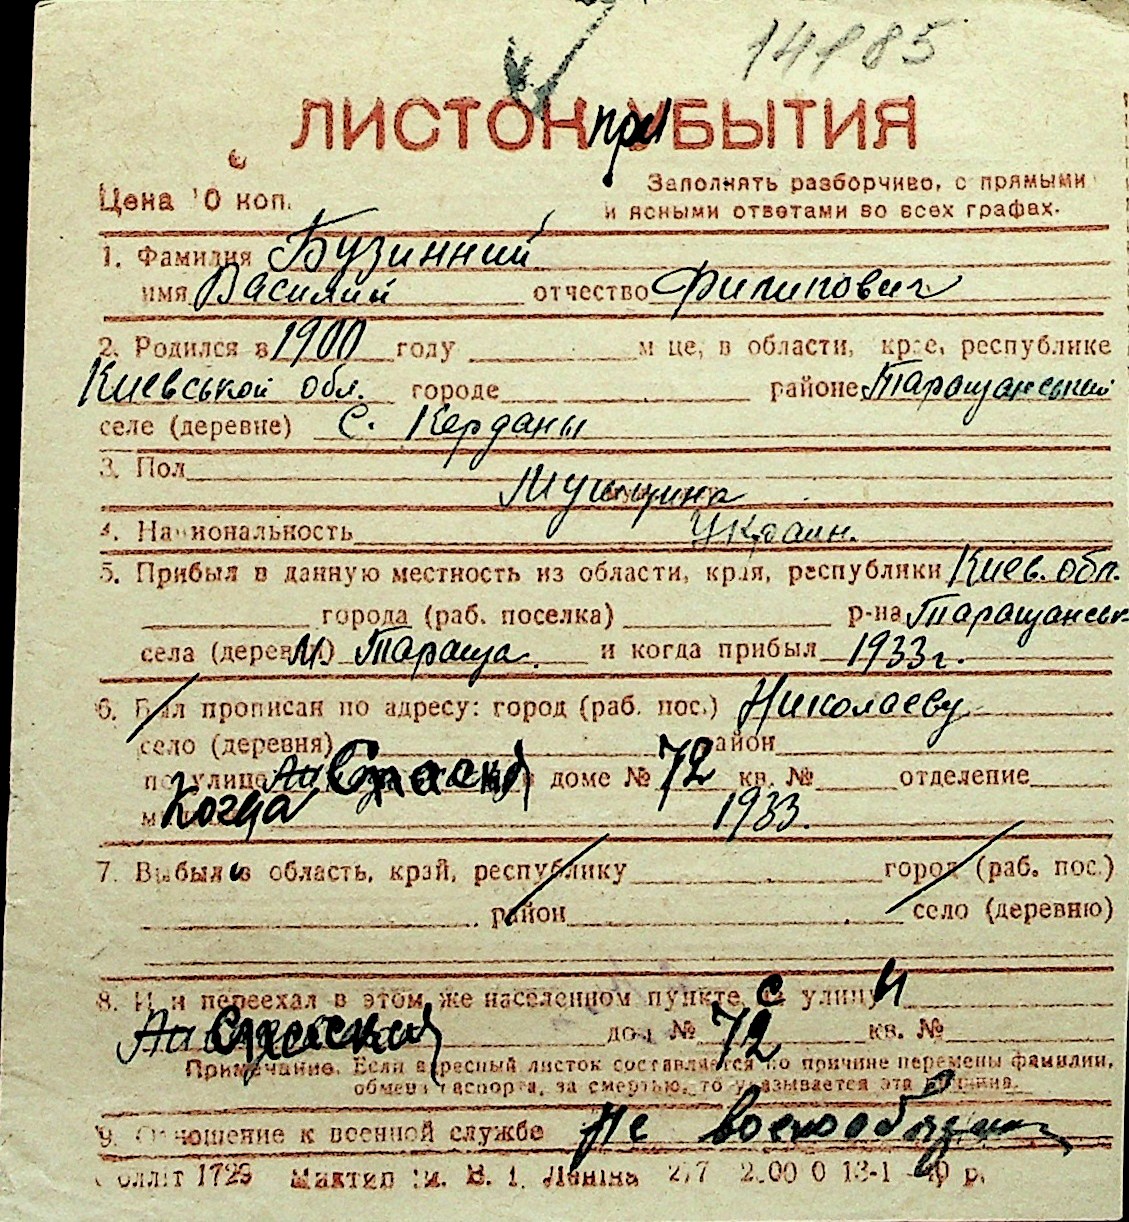 14185
ЛИСТОК при УБЫТИЯ
Цена 10 коп.
Заполнять разборчиво, с прямыми
и ясными ответами во всех графах.
1. Фамилия Бузинний
имя Василий отчество Филипович
2. Родился в 1900 году м-це, в области, крае, республике
Киевськой обл. городе районе Таращанський
селе (деревне) с. Керданы
3. Пол
Мущина
4. Национальность Украин.
5. Прибыл в данную местность из области, края, республики Киев. обл.
города (раб. поселка) р-на Таращанськ
села (деревни) м. Тараща. и когда прибыл 1933 г.
6. Был прописан по адресу: город (раб. пос.) Николаеву
село (деревня) район
по улице Спаск. в доме № 72 кв. № отделение
Когда 1933.
7. Выбыл в область, край, республику город (раб. пос.)
район село (деревню)
8. Или переехал в этом же населенном пункте с улицы
Спаской дом № 72 кв. №
Примечание. Если адресный листок составляется по причине перемены фамилии,
обмена паспорта, за смертью, то указывается эта причина.
9. Отношение к военной службе не военообязан
лліт 1729 ім. В. І. Леніна 2/7 2.00 0